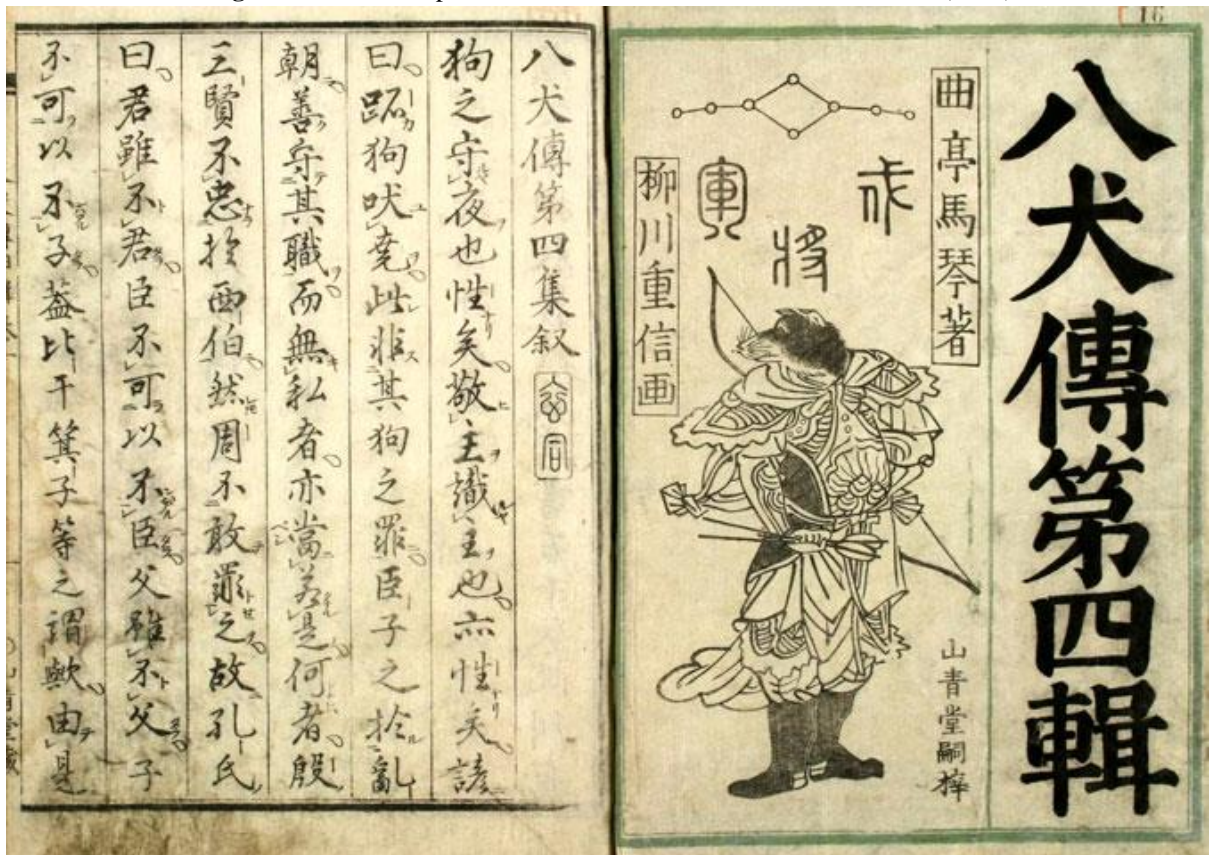 16
八犬傳第四輯
曲亭馬琴著
柳川重信画
山青堂嗣梓
八犬傳第四集叙
狗之守夜也性矣敬主識主也亦性矣諺
曰跖狗吠堯此非其狗之罪臣子之於亂
朝善守其職而無私者亦當若是何者殷
三賢不忠於西伯然周不敢罪之故孔氏
曰君雖不君臣不可以不臣父雖不父子
不可以不子蓋比干箕子等之謂歟由是